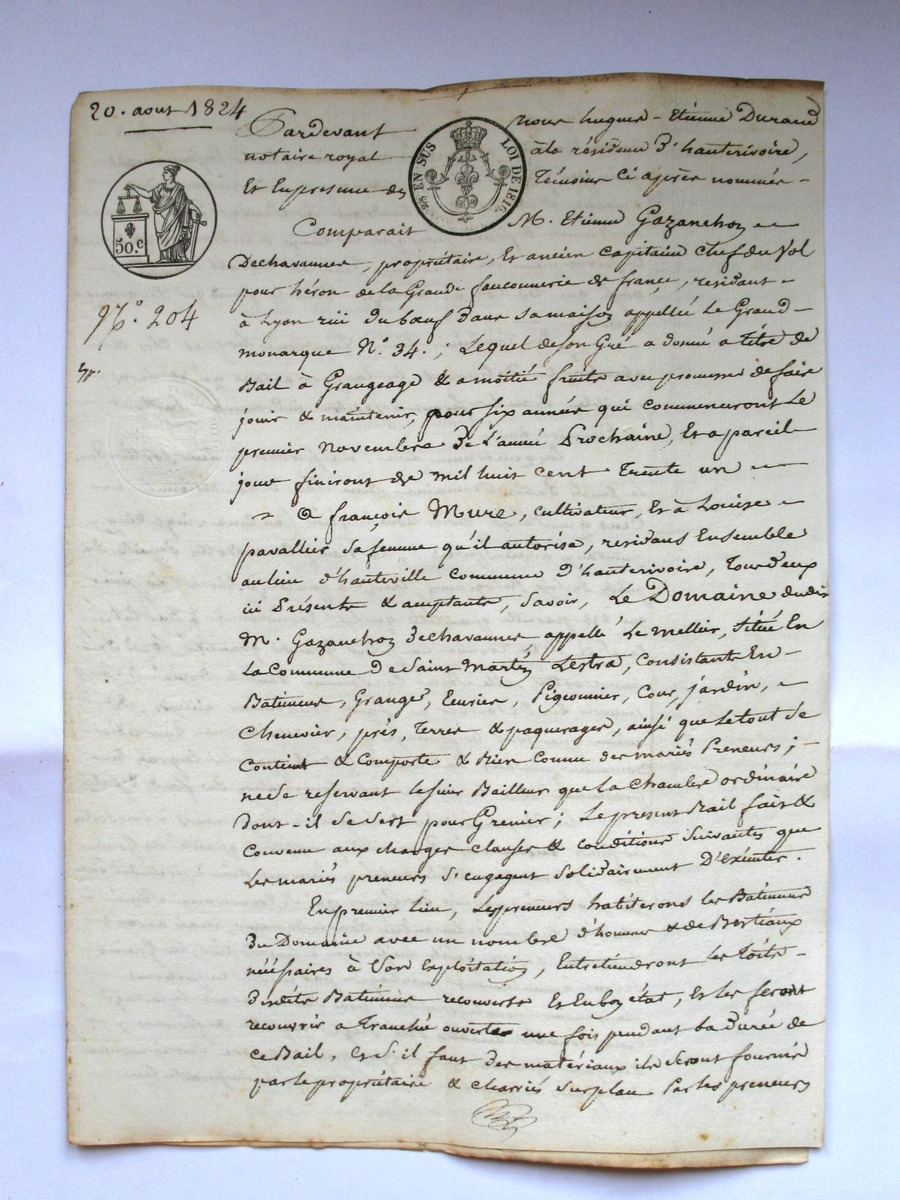 20. aout 1824
50.c
EN SUS LOI DE 1816.
N.º 204
Pardevant nous hugues-Etienne Durand
notaire royal à la résidence d'hauterivoire,
Et En presence des Témoins Ci après nommés -
Comparait M. Etienne Gazanchon
Dechavannes, propriétaire, Et ancien Capitaine chef du Vol
pour héron de la Grande fauconnerie de france, residant
à Lyon rüe du bœuf dans sa maison appellée Le Grand-
monarque N.º 34.; Lequel de son Gré a donné a titre de
Bail à Grangeage & a moitié fruits avec promesse de faire
jouir & maintenir, pour six années qui commenceront Le
premier novembre de L'année Prochaine, Et a pareil
jour finiront de mil huit cent Trente un
@ françois Mure, cultivateur, Et à Louise
pavallier sa femme qu'il autorise, residans Ensemble
au lieu d'hauteville Commune d'hauterivoire, Tous deux
ici Présents & acceptants, Savoir, Le Domaine dudit
M. Gazanchon Dechavannes appellé Le mellier, Situé En
La Commune de Saint Martin Lestra, Consistant En
Batiments, Grange, Ecuries, Pigeonnier, Cour, jardin,
Chenevier, prés, Terres & paquerages, ainsi que le tout se
Contient & Comporte & Bien Connu des mariés Preneurs;
ne se reservant le sieur Bailleur que la Chambre ordinaire
dont-il se sert pour Grenier; Le present Bail fait &
Convenu aux charges clauses & conditions Suivantes que
Les mariés preneurs s'engagent solidairement D'Exécuter.
En premier lieu, Les preneurs habiterons les Batiments
du Domaine avec un nombre d'hommes & de Bestiaux
nécéssaires à Son Exploitation, Entretiendront les Toits
desdits Batiments recouverts Et En bon état, Et les feront
recouvrir a Tranchée ouverte une fois pendant la durée de
ce Bail, Et S'il faut des matériaux ils Seront fournis
par le propriétaire & charriés Sur place Par les preneurs